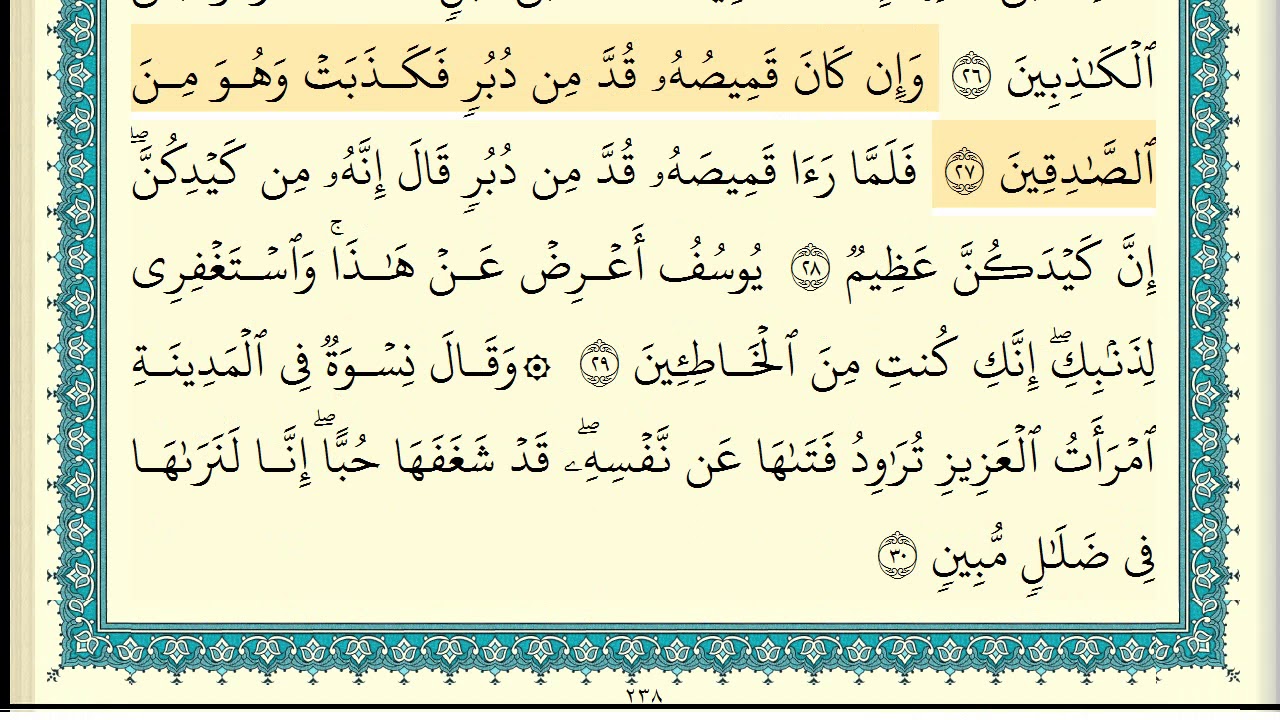 ٱلْكَـٰذِبِينَ ٢٦ وَإِن كَانَ قَمِيصُهُۥ قُدَّ مِن دُبُرٍ فَكَذَبَتْ وَهُوَ مِنَ
ٱلصَّـٰدِقِينَ ٢٧ فَلَمَّا رَءَا قَمِيصَهُۥ قُدَّ مِن دُبُرٍ قَالَ إِنَّهُۥ مِن كَيْدِكُنَّ ۖ
إِنَّ كَيْدَكُنَّ عَظِيمٌ ٢٨ يُوسُفُ أَعْرِضْ عَنْ هَـٰذَا ۚ وَٱسْتَغْفِرِى
لِذَنۢبِكِ ۖ إِنَّكِ كُنتِ مِنَ ٱلْخَاطِـِٔينَ ٢٩ ۞ وَقَالَ نِسْوَةٌ فِى ٱلْمَدِينَةِ
ٱمْرَأَتُ ٱلْعَزِيزِ تُرَٰوِدُ فَتَىٰهَا عَن نَّفْسِهِۦ ۖ قَدْ شَغَفَهَا حُبًّا ۖ إِنَّا لَنَرَىٰهَا
فِى ضَلَـٰلٍ مُّبِينٍ ٣٠
٢٣٨